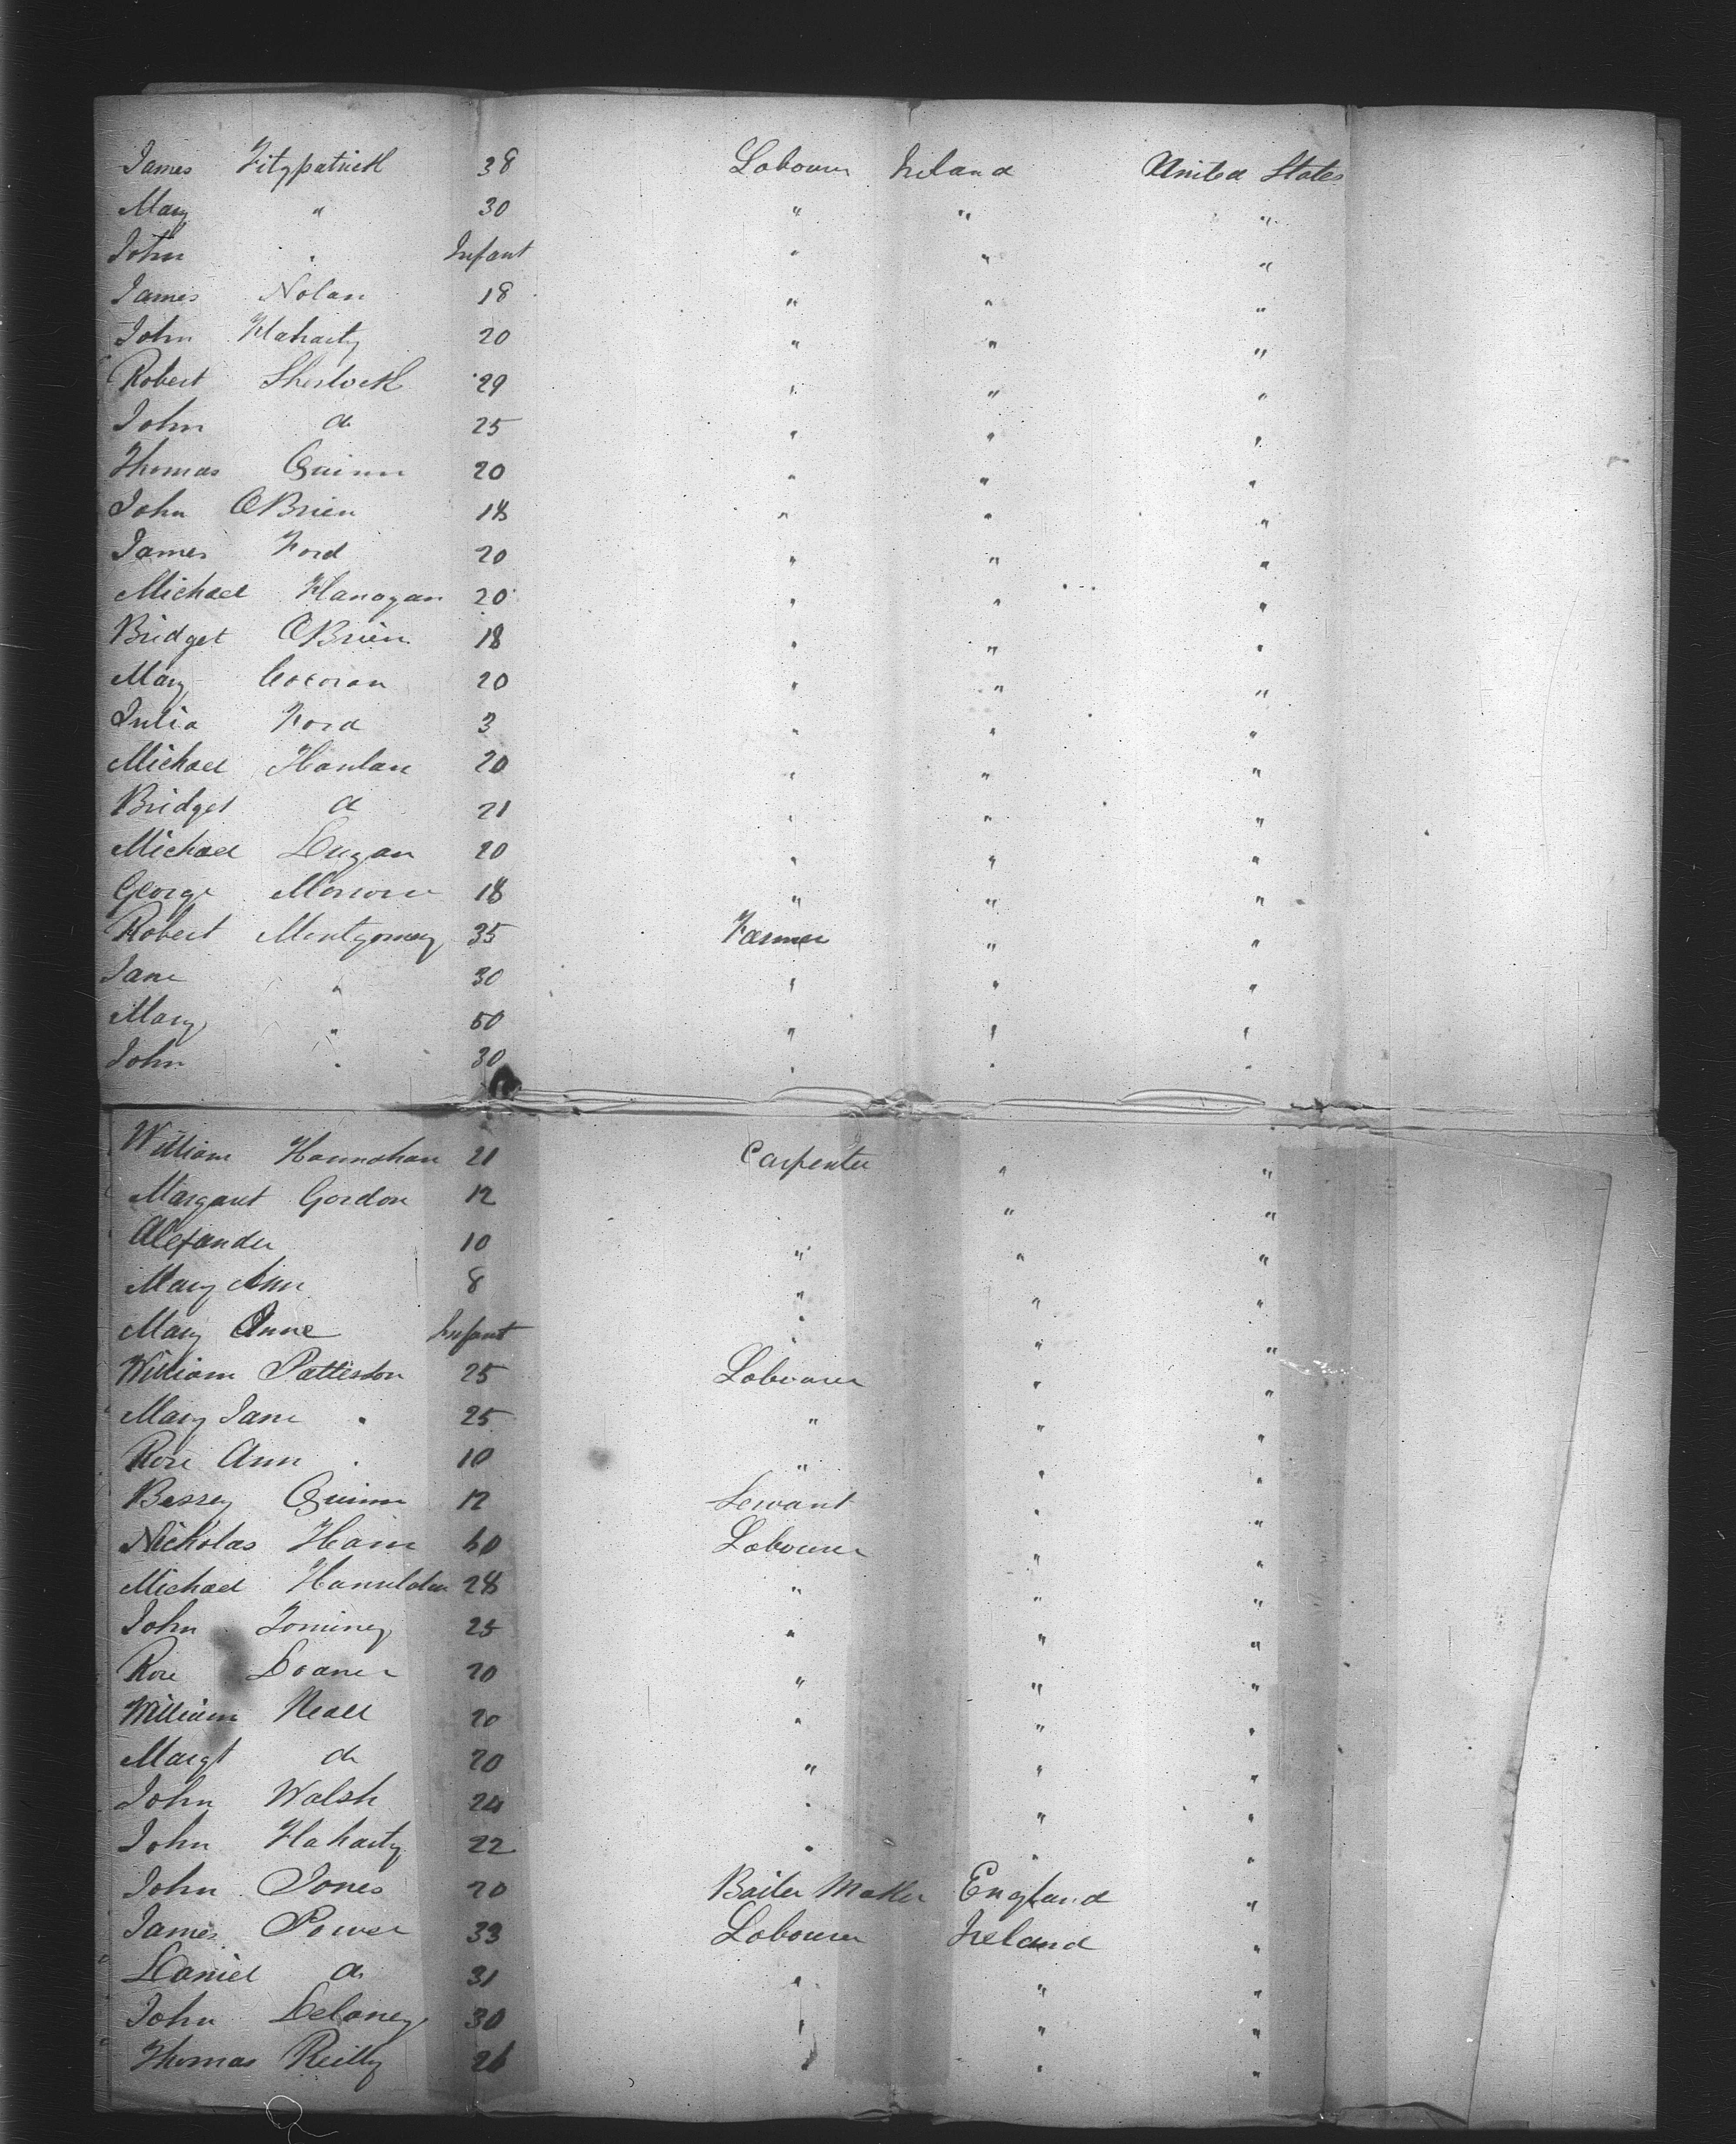 James Fitzpatrick 38 Labourer Ireland United States
Mary " 30 " " "
John " Infant " " "
James Nolan 18 " " "
John Flaharty 20 " " "
Robert Sherlock 29 " " "
John do 25 " " "
Thomas Quinn 20 " " "
John OBrien 18 " " "
James Ford 20 " " "
Michael Flanagan 20 " " "
Bridget OBrien 18 " " "
Mary Cocoran 20 " " "
Julia Ford 3 " " "
Michael Hanlan 20 " " "
Bridget do 21 " " "
Michael Dugan 20 " " "
George 18 " " "
Robert Montgomery 35 Farmer " "
Jane " 30 " " "
Mary " " " "
John " 30 " " "
William Hannahan 21 Carpenter " "
Margaret Gordon 12 " "
Alexander 10 " " "
Mary Ann 8 " " "
Mary Anne Infant " " "
William Patterson 25 Labourer " "
Mary Jane " 25 " " "
Rose Ann " 10 " " "
Bessey Quinn 12 Servant " "
Nicholas Labourer " "
Michael 28 " " "
John 25 " " "
Rose 20 " " "
William Neall 20 " " "
Margt do 20 " " "
John Walsh 24 " " "
John Flaharty 22 " " "
John Jones 20 Boiler Maker England "
James Power 33 Labourer Ireland "
Daniel do 31 " " "
John Delaney 30 " " "
Thomas Reilly " " "